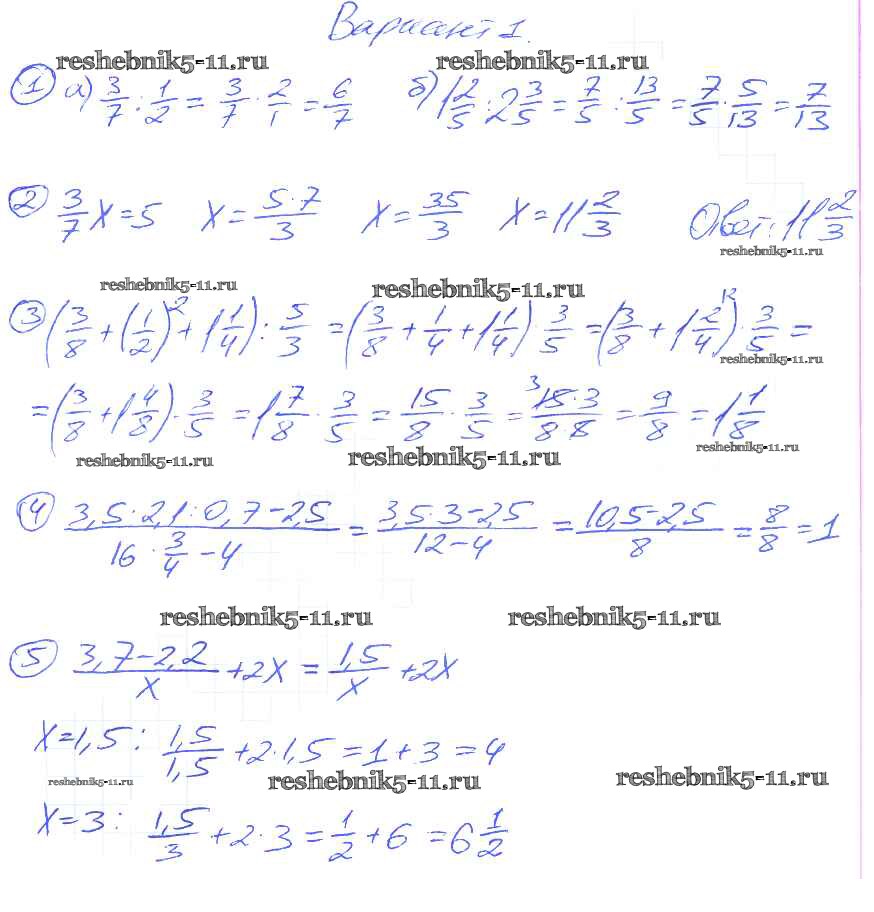 Вариант 1.
reshebnik5-11.ru reshebnik5-11.ru
① а) 3/7 : 1/2 = 3/7 · 2/1 = 6/7 б) 1 2/5 : 2 3/5 = 7/5 : 13/5 = 7/5 · 5/13 = 7/13
② 3/7 x = 5 x = 5·7/3 x = 35/3 x = 11 2/3 Ответ: 11 2/3
reshebnik5-11.ru
reshebnik5-11.ru reshebnik5-11.ru
③ (3/8 + (1/2)² + 1 1/4) : 5/3 = (3/8 + 1/4 + 1 1/4) · 3/5 = (3/8 + 1 2/4) · 3/5 =
reshebnik5-11.ru
= (3/8 + 1 4/8) · 3/5 = 1 7/8 · 3/5 = 15/8 · 3/5 = 15·3/8·8 = 9/8 = 1 1/8
reshebnik5-11.ru reshebnik5-11.ru reshebnik5-11.ru
④ (3,5·2,1:0,7-2,5)/(16·3/4-4) = (3,5·3-2,5)/(12-4) = (10,5-2,5)/8 = 8/8 = 1
reshebnik5-11.ru reshebnik5-11.ru
⑤ (3,7-2,2)/x + 2x = 1,5/x + 2x
x=1,5: 1,5/1,5 + 2·1,5 = 1+3 = 4
reshebnik5-11.ru reshebnik5-11.ru reshebnik5-11.ru
x=3: 1,5/3 + 2·3 = 1/2 + 6 = 6 1/2